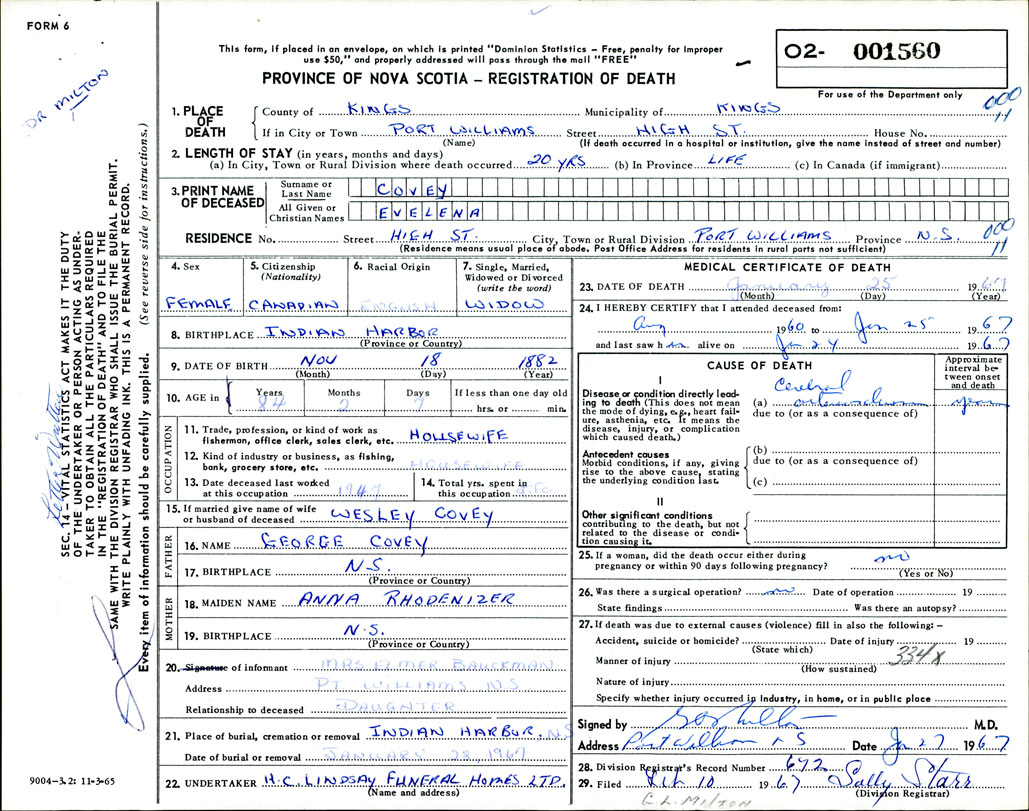 FORM 6
This form, if placed in an envelope, on which is printed "Dominion Statistics – Free, penalty for improper
use $50," and properly addressed will pass through the mail "FREE"
PROVINCE OF NOVA SCOTIA – REGISTRATION OF DEATH
O2- 001560
For use of the Department only
DR MILTON
000
11
1. PLACE OF DEATH
County of KINGS Municipality of KINGS
If in City or Town PORT WILLIAMS Street HIGH ST. House No.
(Name) (If death occurred in a hospital or institution, give the name instead of street and number)
2. LENGTH OF STAY (in years, months and days)
(a) In City, Town or Rural Division where death occurred 20 YRS (b) In Province LIFE (c) In Canada (if immigrant)
3. PRINT NAME OF DECEASED
Surname or Last Name COVEY
All Given or Christian Names EVELENA
RESIDENCE No. Street HIGH ST. City, Town or Rural Division PORT WILLIAMS Province N.S.
000
11
(Residence means usual place of abode. Post Office Address for residents in rural parts not sufficient)
4. Sex
FEMALE
5. Citizenship (Nationality)
CANADIAN
6. Racial Origin
ENGLISH
7. Single, Married, Widowed or Divorced (write the word)
WIDOW
8. BIRTHPLACE INDIAN HARBOR
(Province or Country)
9. DATE OF BIRTH NOV 18 1882
(Month) (Day) (Year)
10. AGE in Years Months Days If less than one day old
84 2 7 hrs. or min.
OCCUPATION
11. Trade, profession, or kind of work as
fisherman, office clerk, sales clerk, etc. HOUSEWIFE
12. Kind of industry or business, as fishing,
bank, grocery store, etc. HOUSEWIFE
13. Date deceased last worked
at this occupation 1947
14. Total yrs. spent in
this occupation LIFE
15. If married give name of wife
or husband of deceased WESLEY COVEY
FATHER
16. NAME GEORGE COVEY
17. BIRTHPLACE N.S.
(Province or Country)
MOTHER
18. MAIDEN NAME ANNA RHODENIZER
19. BIRTHPLACE N.S.
(Province or Country)
20. Signature of informant MRS ELMER BAUCKMAN
Address PT WILLIAMS N S
Relationship to deceased DAUGHTER
21. Place of burial, cremation or removal INDIAN HARBOR. N S
Date of burial or removal JANUARY 28, 1967
22. UNDERTAKER H.C. LINDSAY FUNERAL HOMES LTD.
(Name and address)
MEDICAL CERTIFICATE OF DEATH
23. DATE OF DEATH January 25 1967
(Month) (Day) (Year)
24. I HEREBY CERTIFY that I attended deceased from:
Aug 1960 to Jan 25 1967
and last saw her alive on Jan 24 1967
CAUSE OF DEATH
Approximate interval between onset and death
I
Disease or condition directly leading to death (This does not mean the mode of dying, e.g., heart failure, asthenia, etc. It means the disease, injury, or complication which caused death.)
Cerebral
(a) arteriosclerosis years
due to (or as a consequence of)
Antecedent causes
Morbid conditions, if any, giving rise to the above cause, stating the underlying condition last.
(b)
due to (or as a consequence of)
(c)
II
Other significant conditions
contributing to the death, but not related to the disease or condition causing it.
25. If a woman, did the death occur either during
pregnancy or within 90 days following pregnancy? no
(Yes or No)
26. Was there a surgical operation? no Date of operation 19
State findings Was there an autopsy?
27. If death was due to external causes (violence) fill in also the following: –
Accident, suicide or homicide? Date of injury 19
(State which)
334x
Manner of injury
(How sustained)
Nature of injury
Specify whether injury occurred in industry, in home, or in public place
Signed by M.D.
Address Port Williams N S Date Jan 27 1967
28. Division Registrar's Record Number 672
29. Filed Feb 10 1967 Sally Starr
(Division Registrar)
E. L. MILTON
SEC. 14 – VITAL STATISTICS ACT MAKES IT THE DUTY
OF THE UNDERTAKER OR PERSON ACTING AS UNDERTAKER
TO OBTAIN ALL THE PARTICULARS REQUIRED
IN THE "REGISTRATION OF DEATH" AND TO FILE THE
SAME WITH THE DIVISION REGISTRAR WHO SHALL ISSUE THE BURIAL PERMIT.
WRITE PLAINLY WITH UNFADING INK. THIS IS A PERMANENT RECORD.
Every item of information should be carefully supplied. (See reverse side for instructions.)
9004-3.2: 11-3-65